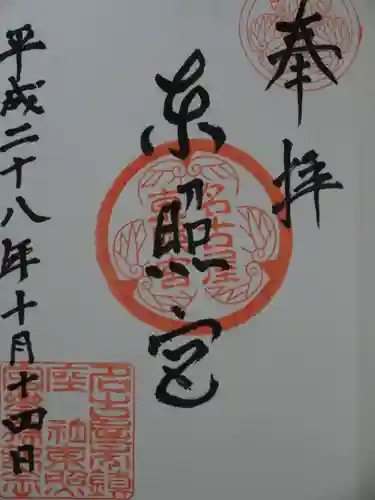 奉拝
東照宮
名古屋
東照宮
平成二十八年十月十四日